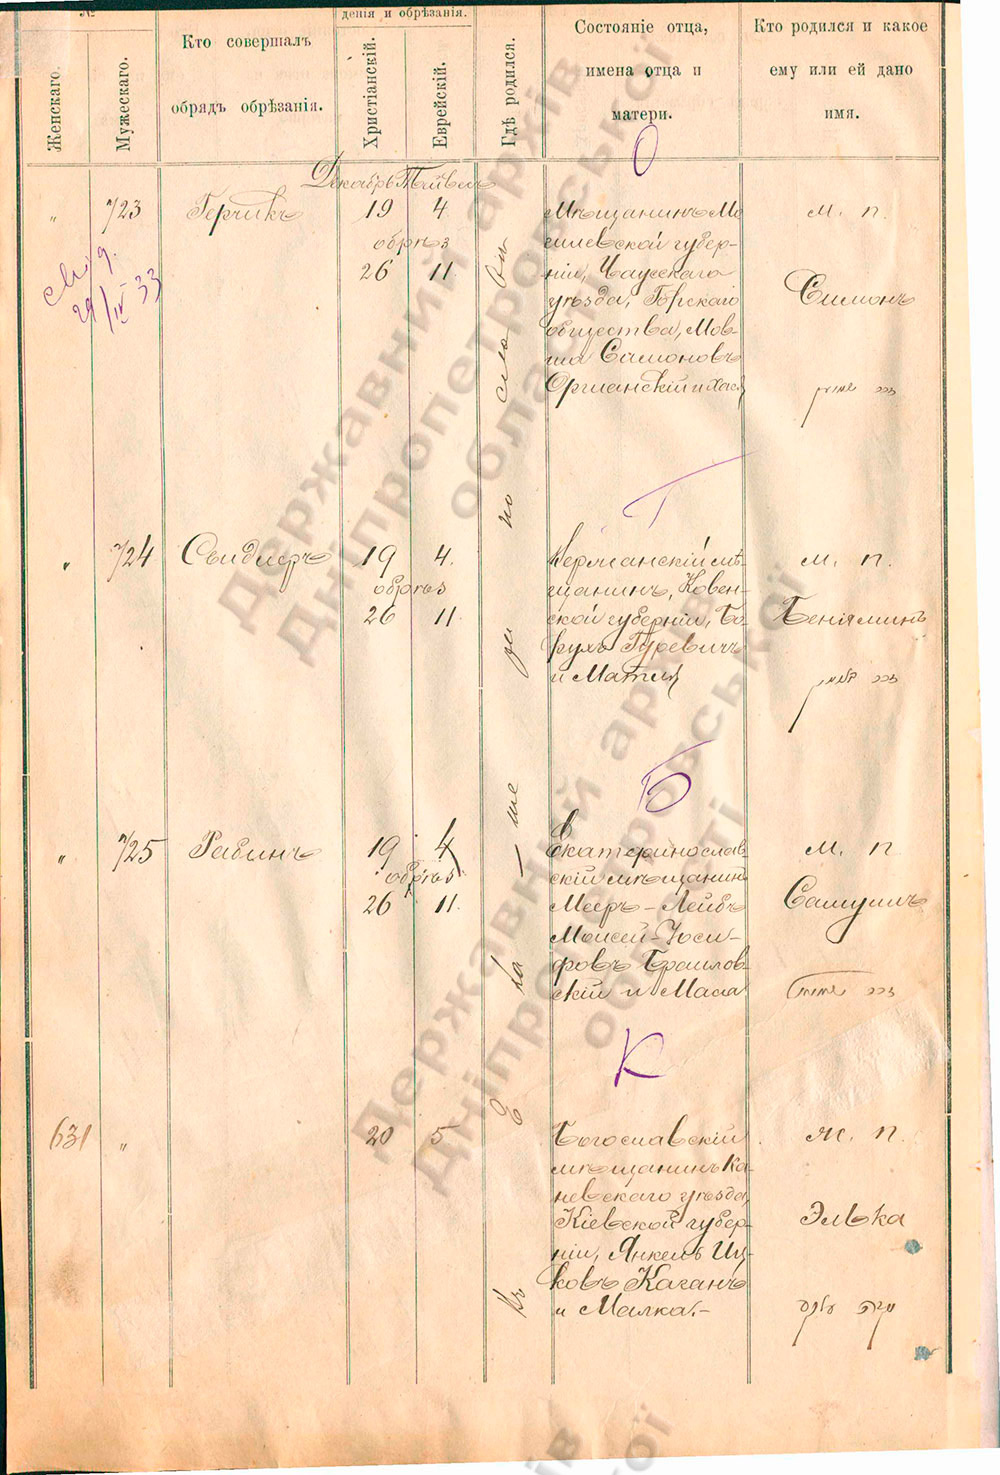 №
Женскаго.
Мужескаго.
Кто совершалъ
обрядъ обрѣзанія.
денія и обрѣзанія.
Христіанскій.
Еврейскій.
Гдѣ родился.
Состояніе отца,
имена отца и
матери.
Кто родился и какое
ему или ей дано
имя.
О
Декабрь Тейвесъ
" 723 Герчикъ 19 4
обрѣз
26 11
29/IV 33
Мѣщанинъ Мо-
гилевской губер-
ніи, Чаусскаго
уѣзда, Горскаго
общества, Мов-
ша Самоновъ
Оршанскій и Хася
м. п.
Симонъ
זכר שמעון
Г
" 724 Сындлеръ 19 4.
обрѣз
26 11
Керманскій мѣ-
щанинъ, Ковен-
ской губерніи, Бо-
рухъ Гуревичъ
и Матля
м. п.
Беніяминъ
זכר בנימין
Б
" 725 Рабинъ 19 4
обрѣз
26 11.
Екатеринослав-
скій мѣщанинъ
Мееръ-Лейбъ
Моисей-Іоси-
фовъ Браилов-
скій и Маса
м. п.
Самуилъ
זכר
К
631 " 20 5
Богославскій
мѣщанинъ Ка-
невскаго уѣзда,
Кіевской губер-
ніи, Янкель Иц-
ковъ Каганъ
и Малка.-
ж. п.
Элька
נקבה עלקע
Въ
Державний архів
Дніпропетровської
області
Державний архів
Дніпропетровської
області